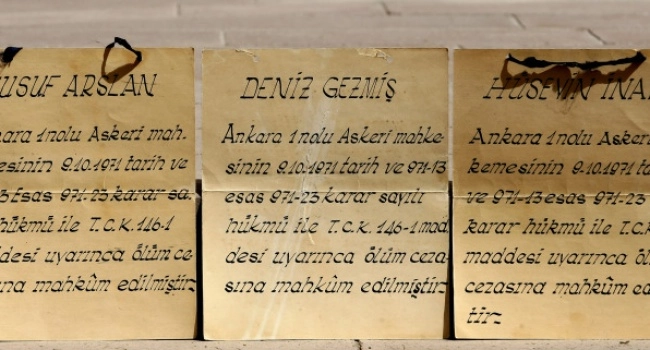 USUF ARSLAN
kara 1 nolu Askeri mah.
esinin 9.10.1971 tarih ve
3 Esas 971-23 karar sa.
hükmü ile T.C.K. 146-1
desi uyarınca ölüm ce
ına mahkûm edilmiştir.
DENİZ GEZMİŞ
Ankara 1 nolu Askeri mahke-
sinin 9.10.1971 tarih ve 971-13
esas 971-23 karar sayılı
hükmü ile T.C.K. 146-1 mad.
desi uyarınca ölüm ceza
sına mahkûm edilmiştir.
HÜSEYİN İNA
Ankara 1 nolu Askeri
kemesinin 9.10.1971 ta
ve 971-13 esas 971-23
karar hükmü ile T.C.K
maddesi uyarınca öl
cezasına mahkûm ed
tir.